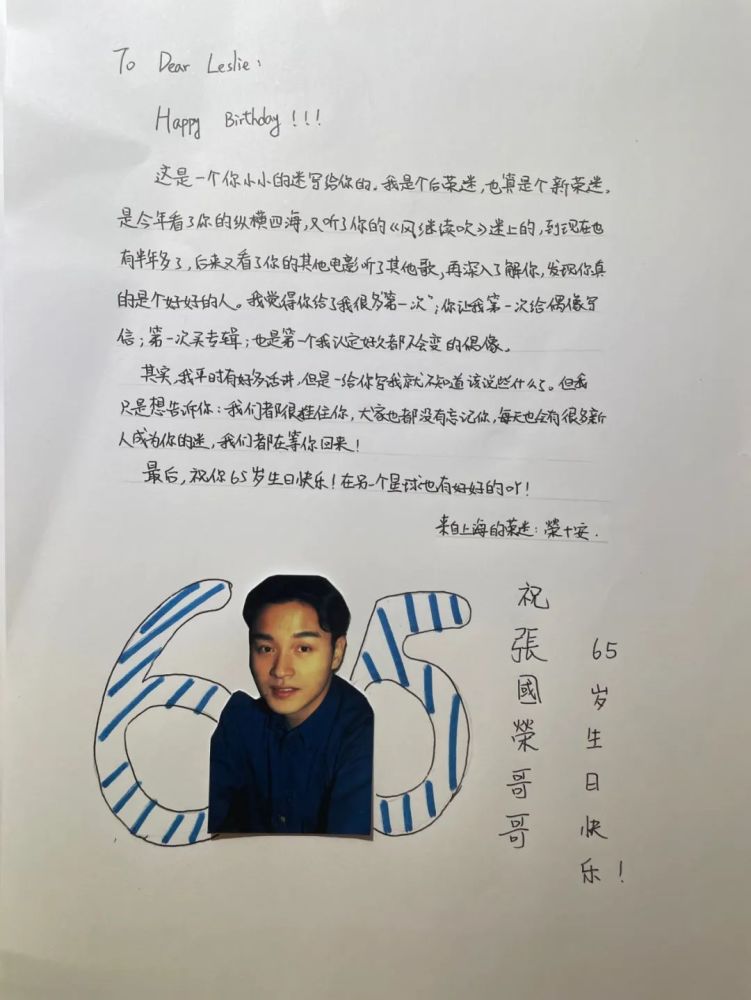 To Dear Leslie:
Happy Birthday!!!
这是一个你小小的迷写给你的。我是个后荣迷,也算是个新荣迷,
是今年看了你的纵横四海,又听了你的《风继续吹》迷上的,到现在也
有半年多了,后来又看了你的其他电影听了其他歌,再深入了解你,发现你真
的是个好好的人。我觉得你给了我很多“第一次”;你让我第一次给偶像写
信;第一次买专辑;也是第一个我认定好久都不会变的偶像。
其实,我平时有好多话讲,但是一给你写我就不知道该说些什么了。但我
只是想告诉你:我们都很挂住你,大家也都没有忘记你,每天也会有很多新
人成为你的迷,我们都在等你回来!
最后,祝你65岁生日快乐!在另一个星球也有好好的吖!
来自上海的荣迷:榮十安.
65
祝張國榮哥哥
65岁生日快乐!